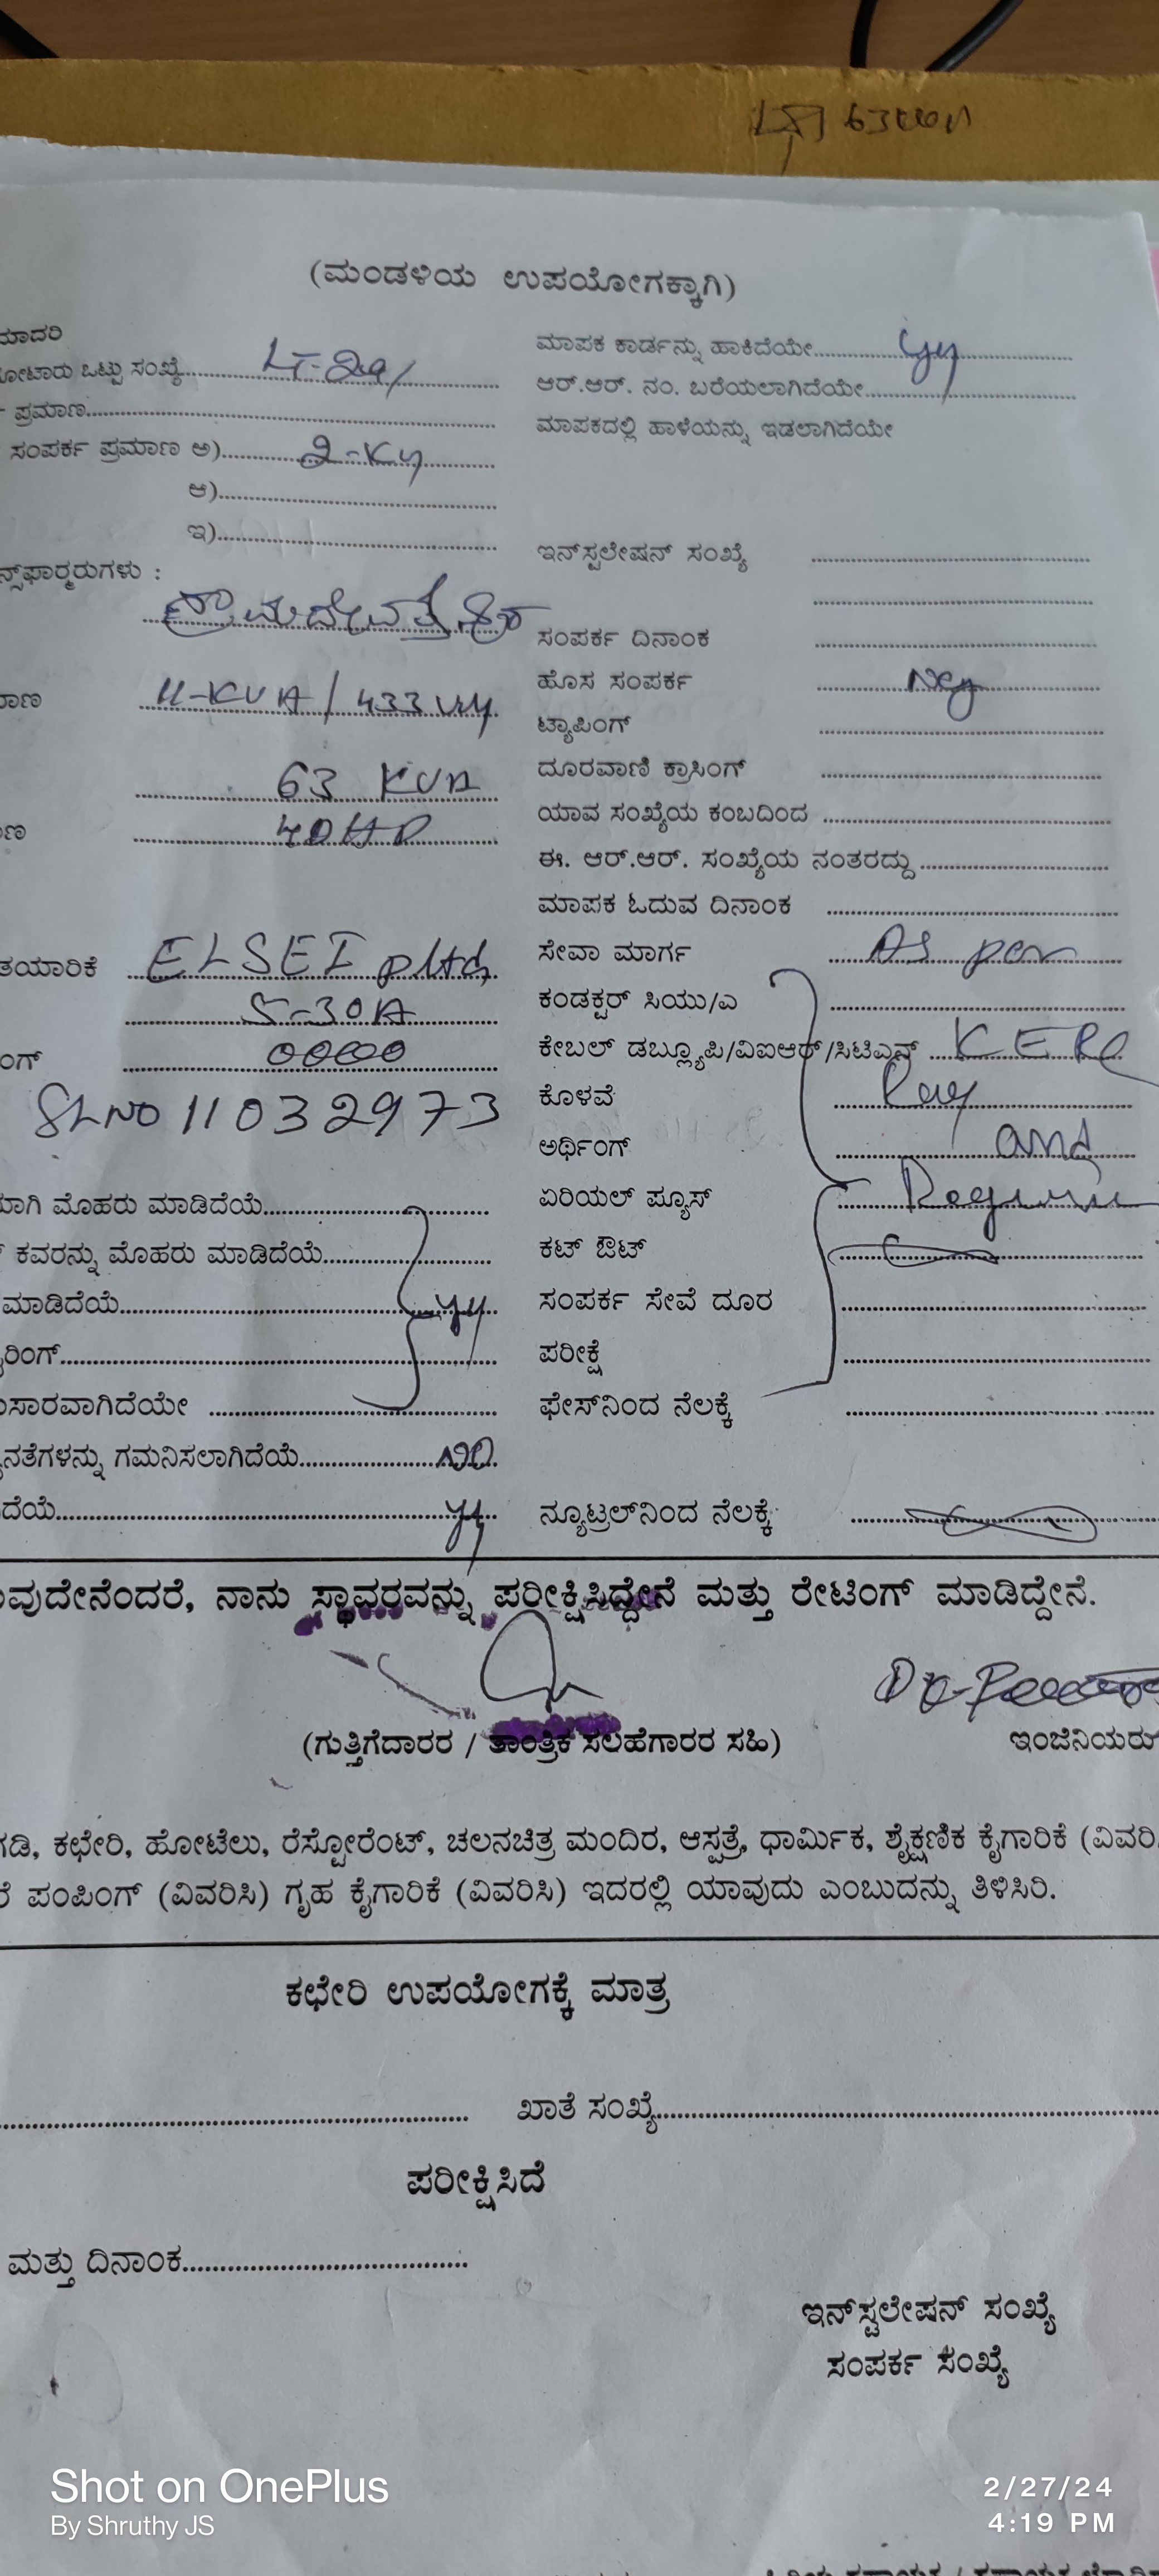 63
(ಮಂಡಳಿಯ ಉಪಯೋಗಕ್ಕಾಗಿ)
ಮಾದರಿ
ಮಾಪಕ ಕಾರ್ಡನ್ನು ಹಾಕಿದೆಯೇ
ಒಟ್ಟು ಸಂಖ್ಯೆ
ಆರ್.ಆರ್. ನಂ. ಬರೆಯಲಾಗಿದೆಯೇ
ಪ್ರಮಾಣ
ಮಾಪಕದಲ್ಲಿ ಹಾಳೆಯನ್ನು ಇಡಲಾಗಿದೆಯೇ
ಸಂಪರ್ಕ ಪ್ರಮಾಣ ಅ)
ಆ)
ಇ)
ಇನ್‌ಸ್ಟಲೇಷನ್ ಸಂಖ್ಯೆ
ನ್ಸ್‌ಫಾರ್ಮರುಗಳು :
ಸಂಪರ್ಕ ದಿನಾಂಕ
11-KVA / 433
ಹೊಸ ಸಂಪರ್ಕ
ಟ್ಯಾಪಿಂಗ್
63 KVA
ದೂರವಾಣಿ ಕ್ರಾಸಿಂಗ್
40HP
ಯಾವ ಸಂಖ್ಯೆಯ ಕಂಬದಿಂದ
ಈ. ಆರ್.ಆರ್. ಸಂಖ್ಯೆಯ ನಂತರದ್ದು
ಮಾಪಕ ಓದುವ ದಿನಾಂಕ
ತಯಾರಿಕೆ
ಸೇವಾ ಮಾರ್ಗ As per
5-30A
ಕಂಡಕ್ಟರ್ ಸಿಯು/ಎ
ಂಗ್ 00000
ಕೇಬಲ್ ಡಬ್ಲ್ಯೂಪಿ/ವಿಐಆರ್/ಸಿಟಿಎನ್ KERC
SLNO 11032973
ಕೊಳವೆ
ಅರ್ಥಿಂಗ್ and
ಯಾಗಿ ಮೊಹರು ಮಾಡಿದೆಯೆ
ಏರಿಯಲ್ ಪ್ಯೂಸ್
ಕವರನ್ನು ಮೊಹರು ಮಾಡಿದೆಯೆ
ಕಟ್ ಔಟ್
ಮಾಡಿದೆಯೆ
ಸಂಪರ್ಕ ಸೇವೆ ದೂರ
ರಿಂಗ್
ಪರೀಕ್ಷೆ
ಸಾರವಾಗಿದೆಯೇ
ಫೇಸ್‌ನಿಂದ ನೆಲಕ್ಕೆ
ನತೆಗಳನ್ನು ಗಮನಿಸಲಾಗಿದೆಯೆ NO
ದೆಯೆ
ನ್ಯೂಟ್ರಲ್‌ನಿಂದ ನೆಲಕ್ಕೆ
ವುದೇನೆಂದರೆ, ನಾನು ಸ್ಥಾವರವನ್ನು ಪರೀಕ್ಷಿಸಿದ್ದೇನೆ ಮತ್ತು ರೇಟಿಂಗ್ ಮಾಡಿದ್ದೇನೆ.
(ಗುತ್ತಿಗೆದಾರರ / ತಾಂತ್ರಿಕ ಸಲಹೆಗಾರರ ಸಹಿ)
ಇಂಜಿನಿಯರು
ಗಡಿ, ಕಛೇರಿ, ಹೋಟೆಲು, ರೆಸ್ಟೋರೆಂಟ್, ಚಲನಚಿತ್ರ ಮಂದಿರ, ಆಸ್ಪತ್ರೆ, ಧಾರ್ಮಿಕ, ಶೈಕ್ಷಣಿಕ ಕೈಗಾರಿಕೆ (ವಿವರಿ
ರೆ ಪಂಪಿಂಗ್ (ವಿವರಿಸಿ) ಗೃಹ ಕೈಗಾರಿಕೆ (ವಿವರಿಸಿ) ಇದರಲ್ಲಿ ಯಾವುದು ಎಂಬುದನ್ನು ತಿಳಿಸಿರಿ.
ಕಛೇರಿ ಉಪಯೋಗಕ್ಕೆ ಮಾತ್ರ
ಖಾತೆ ಸಂಖ್ಯೆ
ಪರೀಕ್ಷಿಸಿದೆ
ಮತ್ತು ದಿನಾಂಕ
ಇನ್‌ಸ್ಟಲೇಷನ್ ಸಂಖ್ಯೆ
ಸಂಪರ್ಕ ಸಂಖ್ಯೆ
Shot on OnePlus
By Shruthy JS
2/27/24
4:19 PM